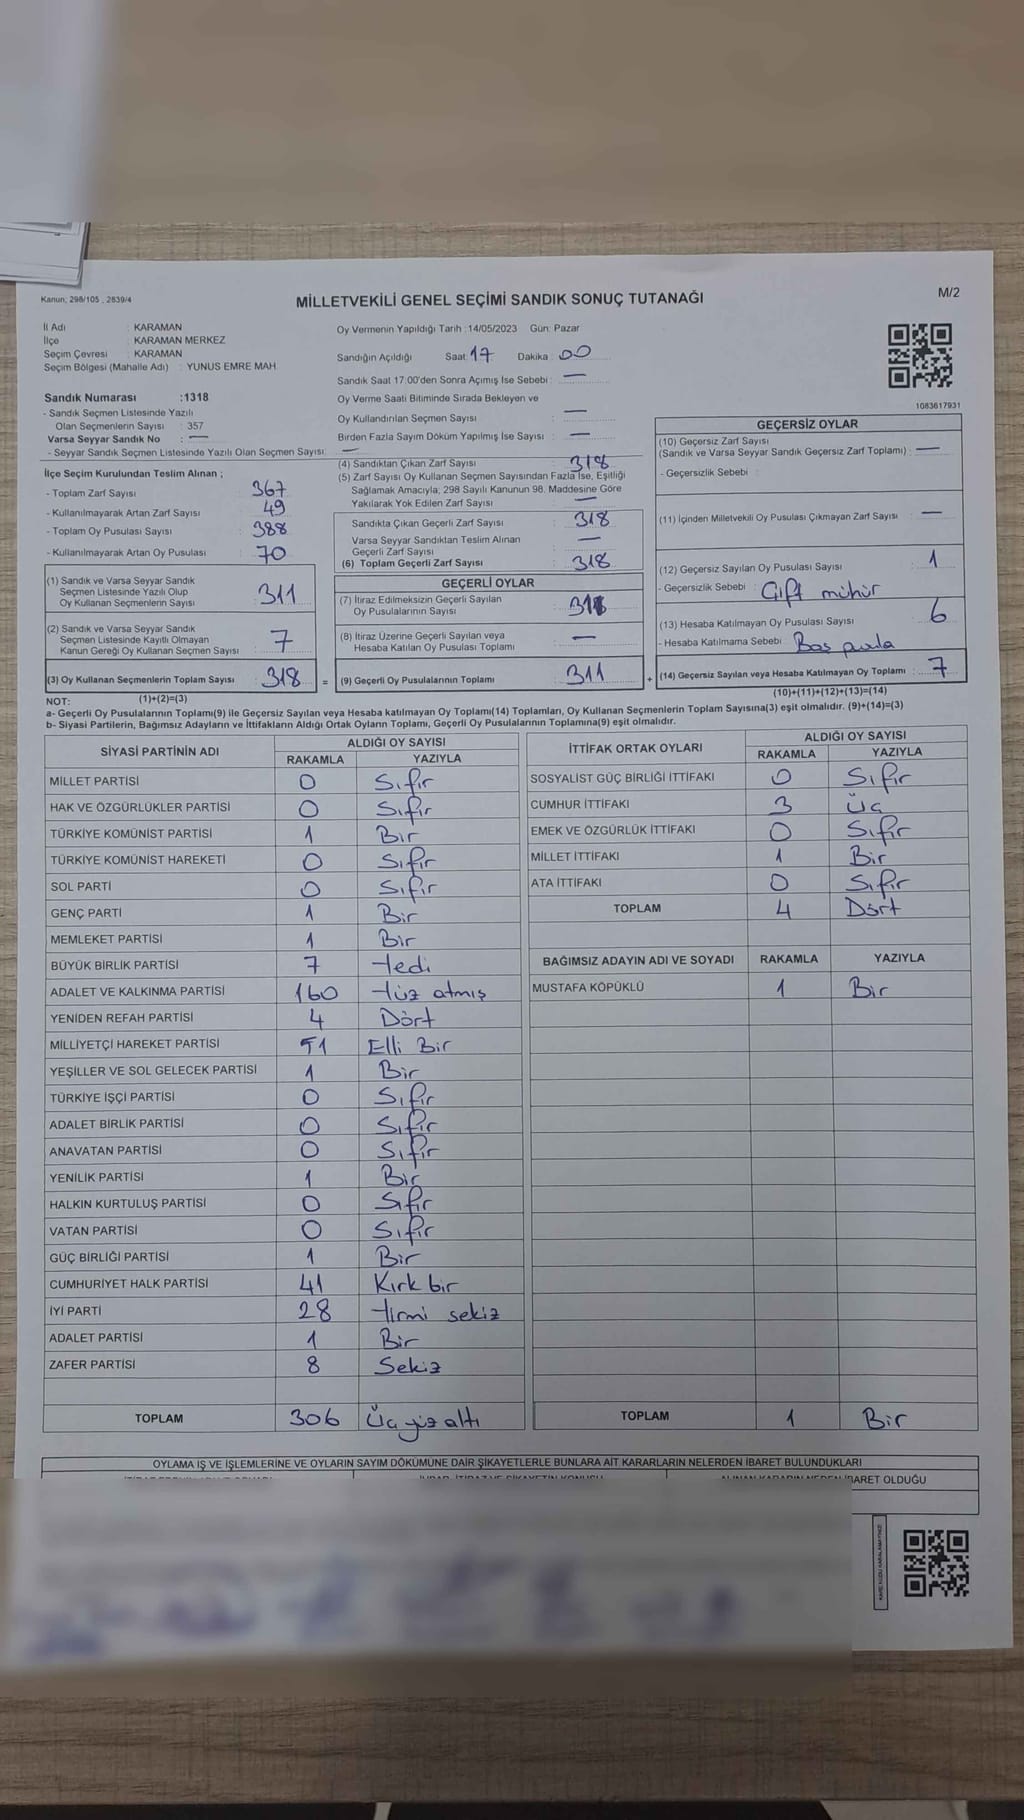 Kanun; 298/105 , 2839/4
MİLLETVEKİLİ GENEL SEÇİMİ SANDIK SONUÇ TUTANAĞI
M/2
İl Adı : KARAMAN
İlçe : KARAMAN MERKEZ
Seçim Çevresi : KARAMAN
Seçim Bölgesi (Mahalle Adı) : YUNUS EMRE MAH.
Sandık Numarası :1318
- Sandık Seçmen Listesinde Yazılı
Olan Seçmenlerin Sayısı : 357
Varsa Seyyar Sandık No : —
- Seyyar Sandık Seçmen Listesinde Yazılı Olan Seçmen Sayısı: —
Oy Vermenin Yapıldığı Tarih :14/05/2023 Gün: Pazar
Sandığın Açıldığı Saat: 17 Dakika : 00
Sandık Saat 17:00'den Sonra Açımış İse Sebebi : —
Oy Verme Saati Bitiminde Sırada Bekleyen ve
Oy Kullandırılan Seçmen Sayısı : —
Birden Fazla Sayım Döküm Yapılmış İse Sayısı : —
1083617931
İlçe Seçim Kurulundan Teslim Alınan ;
- Toplam Zarf Sayısı : 367
- Kullanılmayarak Artan Zarf Sayısı : 49
- Toplam Oy Pusulası Sayısı : 388
- Kullanılmayarak Artan Oy Pusulası : 70
(1) Sandık ve Varsa Seyyar Sandık
Seçmen Listesinde Yazılı Olup
Oy Kullanan Seçmenlerin Sayısı : 311
(2) Sandık ve Varsa Seyyar Sandık
Seçmen Listesinde Kayıtlı Olmayan
Kanun Gereği Oy Kullanan Seçmen Sayısı : 7
(3) Oy Kullanan Seçmenlerin Toplam Sayısı : 318 =
(4) Sandıktan Çıkan Zarf Sayısı : 318
(5) Zarf Sayısı Oy Kullanan Seçmen Sayısından Fazla İse, Eşitliği
Sağlamak Amacıyla; 298 Sayılı Kanunun 98. Maddesine Göre
Yakılarak Yok Edilen Zarf Sayısı : —
Sandıkta Çıkan Geçerli Zarf Sayısı : 318
Varsa Seyyar Sandıktan Teslim Alınan
Geçerli Zarf Sayısı : —
(6) Toplam Geçerli Zarf Sayısı : 318
GEÇERLİ OYLAR
(7) İtiraz Edilmeksizin Geçerli Sayılan
Oy Pusulalarının Sayısı :
(8) İtiraz Üzerine Geçerli Sayılan veya
Hesaba Katılan Oy Pusulası Toplamı : —
(9) Geçerli Oy Pusulalarının Toplamı : 311 +
GEÇERSİZ OYLAR
(10) Geçersiz Zarf Sayısı
(Sandık ve Varsa Seyyar Sandık Geçersiz Zarf Toplamı) : —
- Geçersizlik Sebebi :
(11) İçinden Milletvekili Oy Pusulası Çıkmayan Zarf Sayısı : —
(12) Geçersiz Sayılan Oy Pusulası Sayısı : 1
- Geçersizlik Sebebi : Çift mühür
(13) Hesaba Katılmayan Oy Pusulası Sayısı : 6
- Hesaba Katılmama Sebebi : Boş pusula
(14) Geçersiz Sayılan veya Hesaba Katılmayan Oy Toplamı : 7
NOT: (1)+(2)=(3)
(10)+(11)+(12)+(13)=(14)
a- Geçerli Oy Pusulalarının Toplamı(9) ile Geçersiz Sayılan veya Hesaba katılmayan Oy Toplamı(14) Toplamları, Oy Kullanan Seçmenlerin Toplam Sayısına(3) eşit olmalıdır. (9)+(14)=(3)
b- Siyasi Partilerin, Bağımsız Adayların ve İttifakların Aldığı Ortak Oyların Toplamı, Geçerli Oy Pusulalarının Toplamına(9) eşit olmalıdır.
SİYASİ PARTİNİN ADI ALDIĞI OY SAYISI
RAKAMLA YAZIYLA
MİLLET PARTİSİ 0 Sıfır
HAK VE ÖZGÜRLÜKLER PARTİSİ 0 Sıfır
TÜRKİYE KOMÜNİST PARTİSİ 1 Bir
TÜRKİYE KOMÜNİST HAREKETİ 0 Sıfır
SOL PARTİ 0 Sıfır
GENÇ PARTİ 1 Bir
MEMLEKET PARTİSİ 1 Bir
BÜYÜK BİRLİK PARTİSİ 7 Yedi
ADALET VE KALKINMA PARTİSİ 160 Yüz atmış
YENİDEN REFAH PARTİSİ 4 Dört
MİLLİYETÇİ HAREKET PARTİSİ 51 Elli Bir
YEŞİLLER VE SOL GELECEK PARTİSİ 1 Bir
TÜRKİYE İŞÇİ PARTİSİ 0 Sıfır
ADALET BİRLİK PARTİSİ 0 Sıfır
ANAVATAN PARTİSİ 0 Sıfır
YENİLİK PARTİSİ 1 Bir
HALKIN KURTULUŞ PARTİSİ 0 Sıfır
VATAN PARTİSİ 0 Sıfır
GÜÇ BİRLİĞİ PARTİSİ 1 Bir
CUMHURİYET HALK PARTİSİ 41 Kırk bir
İYİ PARTİ 28 Yirmi sekiz
ADALET PARTİSİ 1 Bir
ZAFER PARTİSİ 8 Sekiz
TOPLAM 306 Üç yüz altı
İTTİFAK ORTAK OYLARI ALDIĞI OY SAYISI
RAKAMLA YAZIYLA
SOSYALİST GÜÇ BİRLİĞİ İTTİFAKI 0 Sıfır
CUMHUR İTTİFAKI 3 Üç
EMEK VE ÖZGÜRLÜK İTTİFAKI 0 Sıfır
MİLLET İTTİFAKI 1 Bir
ATA İTTİFAKI 0 Sıfır
TOPLAM 4 Dört
BAĞIMSIZ ADAYIN ADI VE SOYADI RAKAMLA YAZIYLA
MUSTAFA KÖPÜKLÜ 1 Bir
TOPLAM 1 Bir
OYLAMA İŞ VE İŞLEMLERİNE VE OYLARIN SAYIM DÖKÜMÜNE DAİR ŞİKAYETLERLE BUNLARA AİT KARARLARIN NELERDEN İBARET BULUNDUKLARI
İBARET OLDUĞU